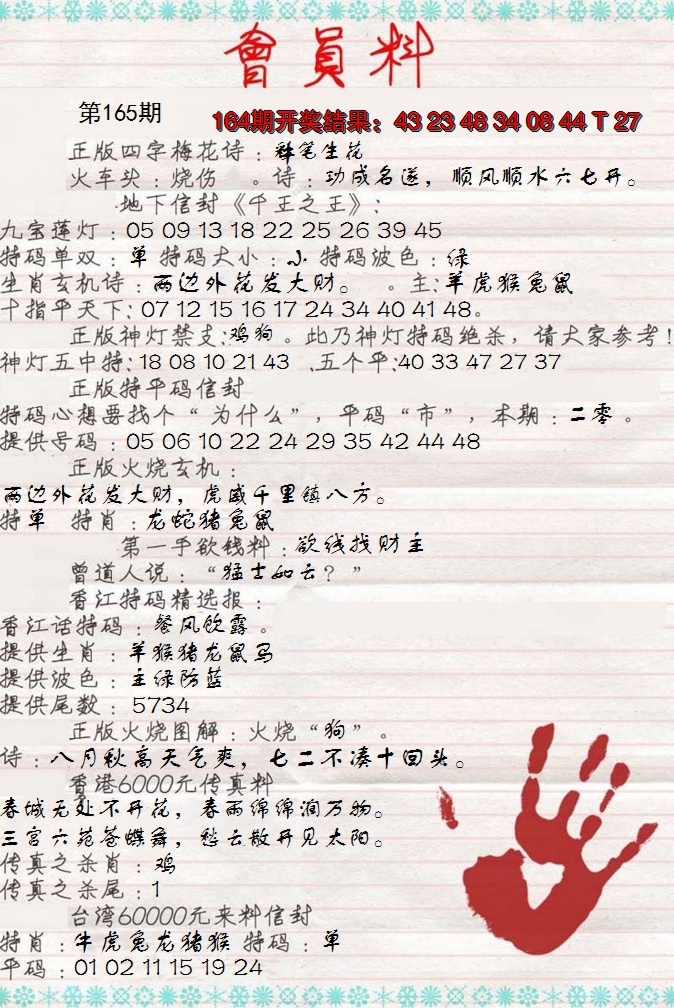 會員料
第165期
164期开奖结果：43 23 48 34 08 44 T 27
正版四字梅花诗：彩笔生花
火车头：烧伤 。诗：功成名遂，顺风顺水六七开。
地下信封《千王之王》：
九宝莲灯：05 09 13 18 22 25 26 39 45
特码单双：单 特码大小：小 特码波色：绿
生肖玄机诗：两边外花发大财。 。主：羊虎猴兔鼠
十指平天下：07 12 15 16 17 24 34 40 41 48。
正版神灯禁支：鸡狗 。此乃神灯特码绝杀，请大家参考！
神灯五中特：18 08 10 21 43 ．五个平：40 33 47 27 37
正版特平码信封
特码心想要找个“为什么”，平码“市”，本期：二零 。
提供号码：05 06 10 22 24 29 35 42 44 48
正版火烧玄机：
两边外花发大财，虎威千里镇八方。
特单 特肖：龙蛇猪兔鼠
第一手欲钱料：欲线找财主
曾道人说：“猛士如云？”
香江特码精选报：
香江话特码：餐风饮露 。
提供生肖：羊猴猪龙鼠马
提供波色：主绿防蓝
提供尾数：5734
正版火烧图解：火烧“狗”。
诗：八月秋高天气爽，七二不凑十回头。
香港6000元传真料
春城无处不开花，春雨绵绵润万物。
三宫六苑苍蝶舞，愁云散开见太阳。
传真之杀肖：鸡
传真之杀尾：1
台湾60000元来料信封
特肖：牛虎兔龙猪猴 特码：单
平码：01 02 11 15 19 24